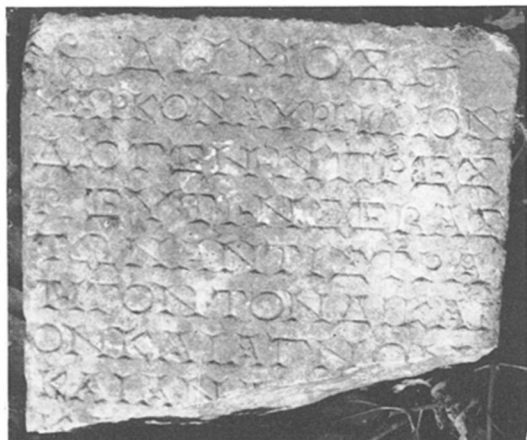 ΔΗΜΟΣ
ΜΑΡΚΟΝΑΥΡΗΛΙΟΝ
ΔΙΟΓΕΝΗΝΠΡΕΣ
ΒΕΥΤΗΝΣΕΒΑΣ
ΤΩΝΑΝΤΙΣΤΡΑ
ΤΗΓΟΝΤΟΝΔΙΚΑΙ
ΟΝΚΑΙΑΓΝΟΝ
ΚΑΙΑΝ